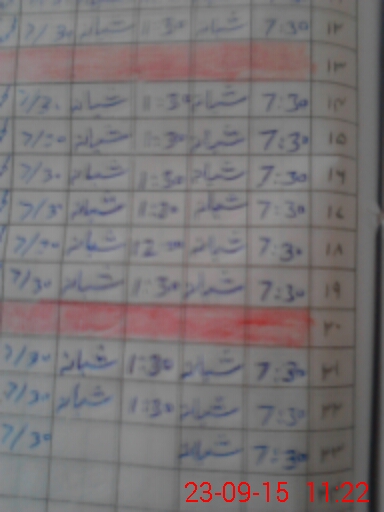 ۱۲ 7:30 شبانه 1:30 شبانه 7/30
۱۳
۱۴ 7:30 شبانه 1:30 شبانه 7/30
۱۵ 7:30 شبانه 1:30 شبانه 7/30
۱۶ 7:30 شبانه 1:30 شبانه 7/30
۱۷ 7:30 شبانه 1:30 شبانه 7/30
۱۸ 7:30 شبانه 12:30 شبانه 7/30
۱۹ 7:30 شبانه 1:30 شبانه 7/30
۲۰
۲۱ 7:30 شبانه 1:30 شبانه 7/30
۲۲ 7:30 شبانه 1:30 شبانه 7/30
۲۳ 7:30 شبانه 7/30
23-09-15 11:22